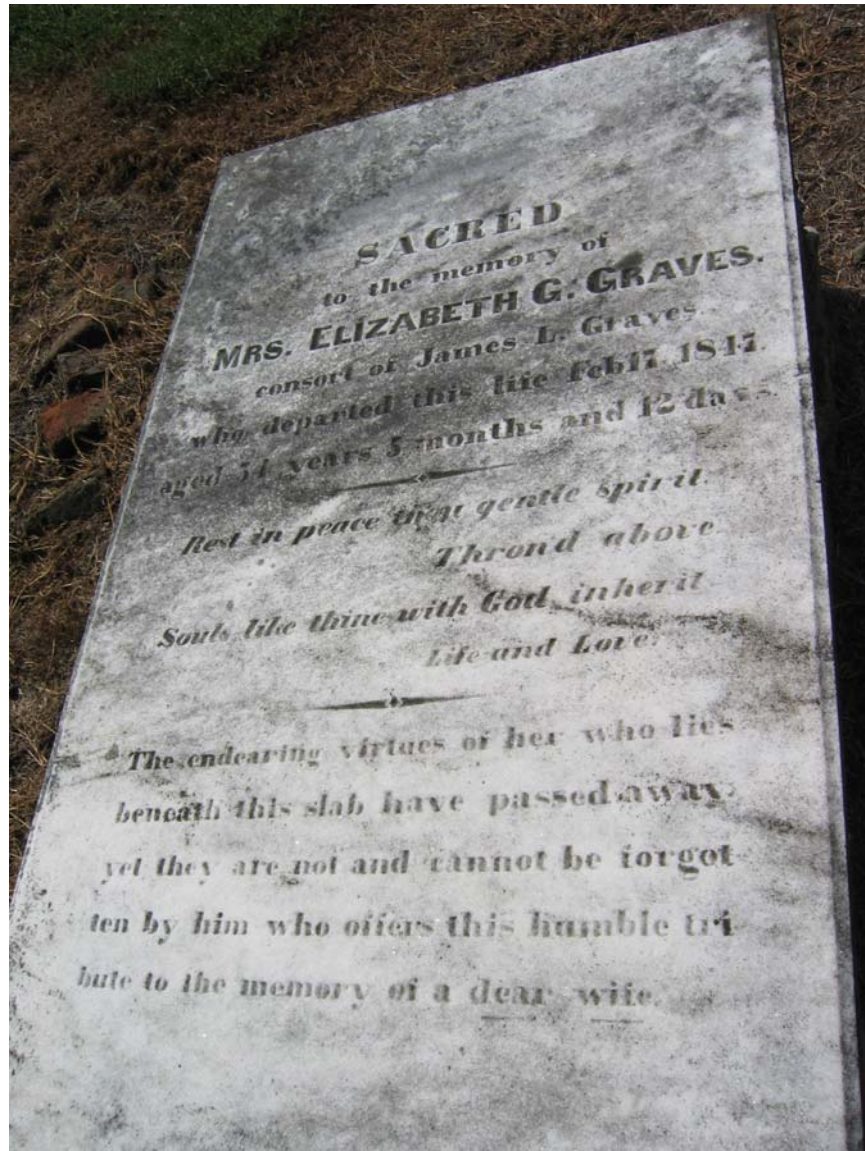 SACRED
to the memory of
MRS. ELIZABETH G. GRAVES.
consort of James L. Graves.
who departed this life Feb 17, 1847.
aged years 5 months and 12 days.
Rest in peace thou gentle spirit.
Thron'd above
Souls like thine with God inherit
Life and Love.
The endearing virtues of her who lies
beneath this slab have passed away,
yet they are not and cannot be forgot
ten by him who offers this humble tri
bute to the memory of a dear wife.